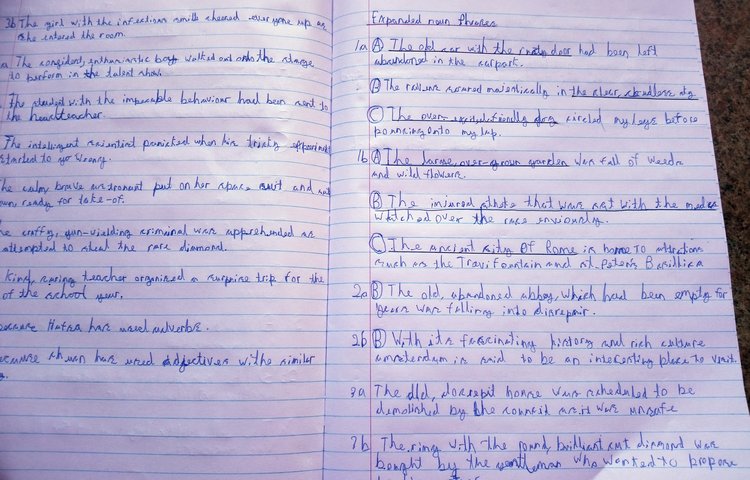 3b The girl with the infectious smile cheered everyone up as
she entered the room.
The confident, enthusiastic boy walked out onto the stage
to perform in the talent show.
The student with the impecable behaviour had been sent to
the headteacher.
The intelligent scientist panicked when his tricky experiment
started to go wrong.
calm brave astronaut put on her space suit and
ready for take-of.
crafty, gun-wielding criminal was apprehended as
attempted to steal the rare diamond.
Kind, caring teacher organised a surprise trip for the
of the school year.
because Hafsa has used adverbs.
has used adjectives with similar
Expanded noun Phrases
1a A The old car with the rusty door had been left
abandoned in the carpark.
B The ravens soared majestically in the clear, cloudless sky
C The over-excited, friendly dog circled my legs before
pouncing onto my lap.
1b A The large, over-grown garden was full of weeds
and wild flowers.
B The injured athlete that was sat with the medics
watched over the race enviously.
C The ancient city Of Rome is home To attractions
such as the Trevi fountain and st. Peter's Basillica
2a B The old, abandoned abbey, which had been empty for
years was falling into disrepair.
2b B With its fascinating history and rich culture
amsterdam is said to be an interesting place to visit.
3a The old, house was scheduled to be
demolished by the council as it was unsafe
3b The ring with the round, brilliant cut diamond was
bought by the gentleman who wanted to propose